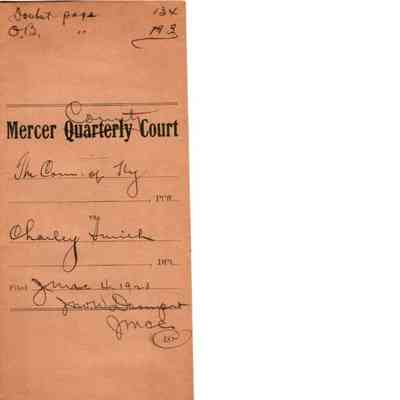 Docket page 134
O.B. " 193
County
Mercer Quarterly Court
The Com. of Ky
, PLTF.
vs
Charley
, DFT.
Filed 4 1921
Jno W Davenport
JMCC